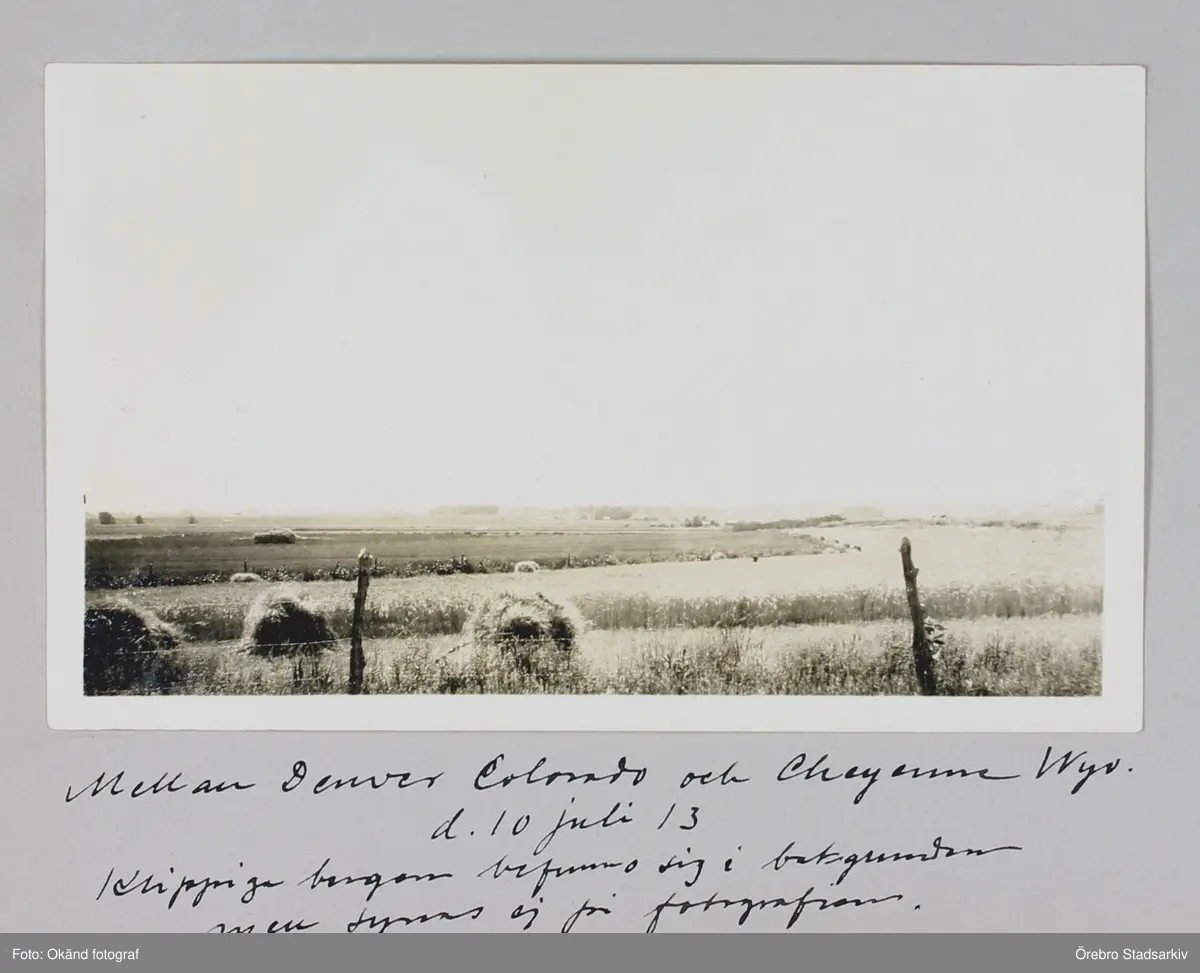 Mellan Denver Colorado och Cheyenne Wyo.
d. 10 juli 13
Klippiga bergen befunno sig i bakgrunden
men synas ej på fotografien.
Foto: Okänd fotograf
Örebro Stadsarkiv